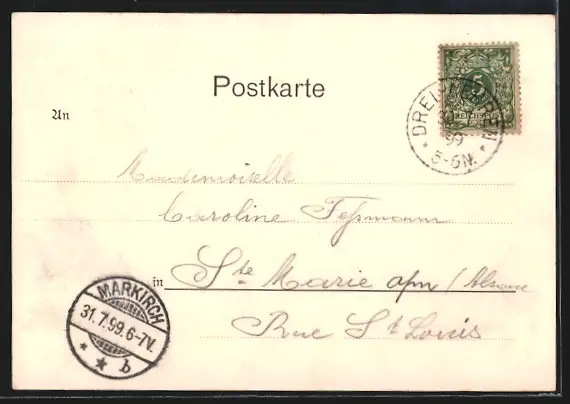 Postkarte
5
REICHSPOST
An
DREI-AEHREN
99
5-6N.
Mademoiselle
Caroline
in Ste Marie a/m (Alsace
Rue St Louis
MARKIRCH
31.7.99.6-7V.
* * b